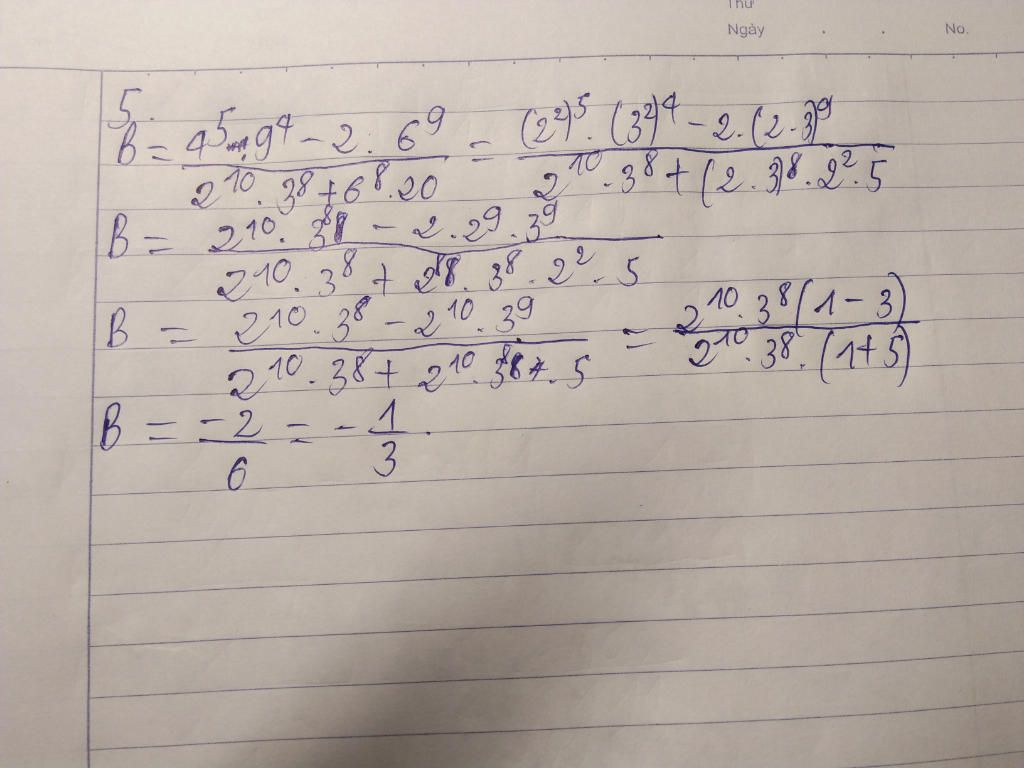 Thứ
Ngày . . No.
5.
B = \frac{4^5 . 9^4 - 2 . 6^9}{2^{10} . 3^8 + 6^8 . 20} = \frac{(2^2)^5 . (3^2)^4 - 2 . (2 . 3)^9}{2^{10} . 3^8 + (2 . 3)^8 . 2^2 . 5}
B = \frac{2^{10} . 3^8 - 2 . 2^9 . 3^9}{2^{10} . 3^8 + 2^8 . 3^8 . 2^2 . 5}
B = \frac{2^{10} . 3^8 - 2^{10} . 3^9}{2^{10} . 3^8 + 2^{10} . 3^8 . 5} = \frac{2^{10} . 3^8 (1 - 3)}{2^{10} . 3^8 . (1 + 5)}
B = \frac{-2}{6} = - \frac{1}{3} .